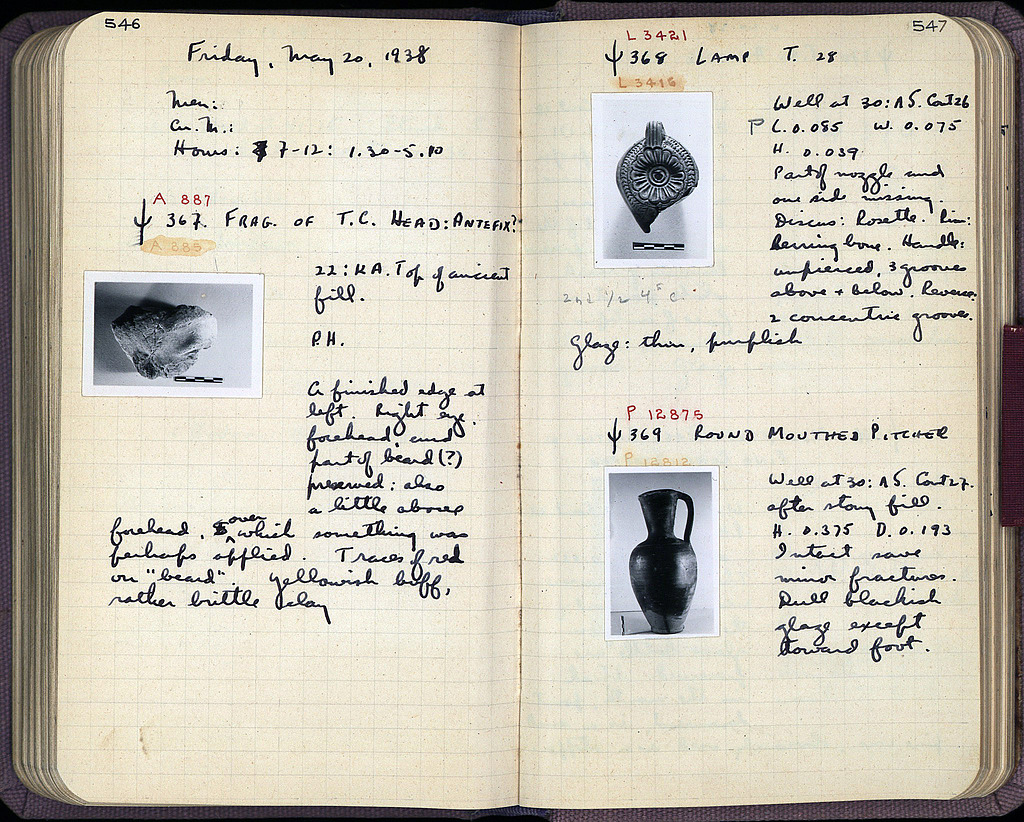 546
Friday, May 20, 1938
Men:
Cu. M.:
Hours: 7-12: 1.30-5.10
A 887
ψ 367. FRAG. OF T.C. HEAD: ANTEFIX?
A 885
22: KA. Top of ancient
fill.
P.H.
A finished edge at
left. Right eye,
forehead, and
part of beard (?)
preserved: also
a little above
forehead, over which something was
perhaps applied. Traces of red
on "beard". Yellowish buff,
rather brittle clay
547
L 3421
ψ 368 LAMP T. 28
L 3416
Well at 30: ΛΣ. Cont 26
P L. 0.085 W. 0.075
H. 0.039
Part of nozzle and
one side missing.
Discus: Rosette. Rim:
Herringbone. Handle:
unpierced, 3 grooves
above + below. Reverse:
2 concentric grooves.
2nd 1/2 4th c.
Glaze: thin, purplish
P 12875
ψ 369 ROUND MOUTHED PITCHER
P 12812
Well at 30: ΛΣ. Cont 27.
after stony fill.
H. 0.375 D. 0.193
Intact save
minor fractures.
Dull blackish
glaze except
toward foot.